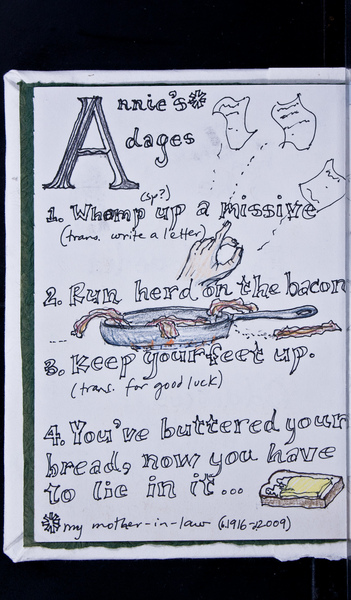 Annie's*
Adages
(sp?)
1. Whomp up a missive
(trans. write a letter)
2. Run herd on the bacon
3. Keep your feet up.
(trans. for good luck)
4. You've buttered your
bread, now you have
to lie in it...
*my mother-in-law (1916-2009)